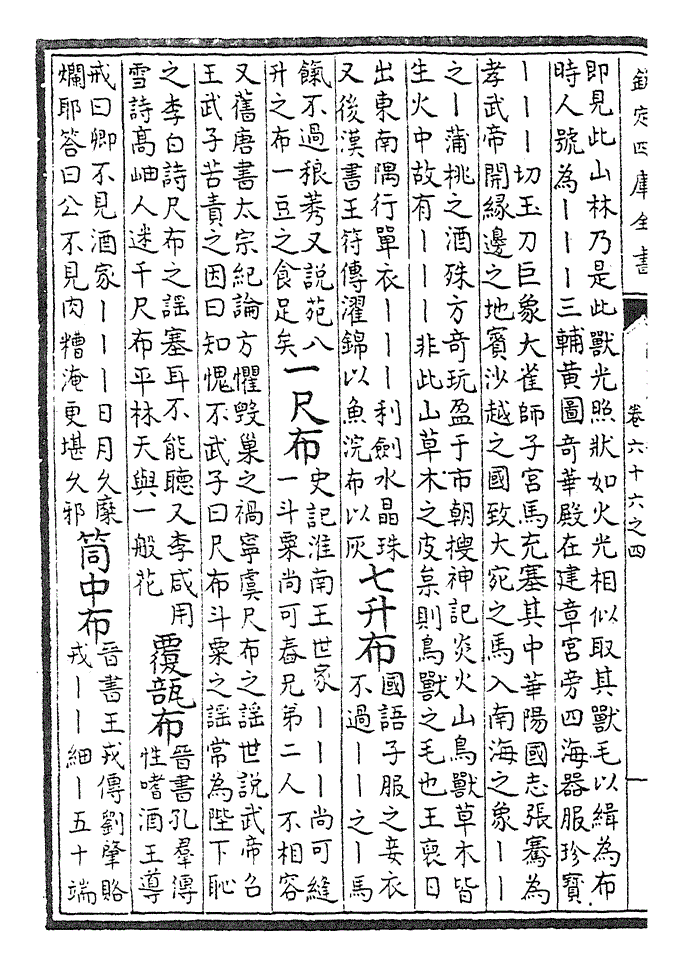 欽定四庫全書
卷六十六之四
即見此山林乃是此獸光照狀如火光相似取其獸毛以緝為布
時人號為丨丨丨三輔黃圖奇華殿在建章宮旁四海器服珍寶
丨丨丨切玉刀巨象大雀師子宮馬充塞其中華陽國志張騫為
孝武帝開緣邊之地賓沙越之國致大宛之馬入南海之象丨丨
之丨蒲桃之酒殊方奇玩盈于市朝搜神記炎火山鳥獸草木皆
生火中故有丨丨丨非此山草木之皮枲則鳥獸之毛也王裒日
出東南隅行單衣丨丨丨利劍水晶珠
又後漢書王符傳濯錦以魚浣布以灰
七升布
國語子服之妾衣
不過丨丨之丨馬
餼不過稂莠又說苑八
升之布一豆之食足矣
一尺布
史記淮南王世家丨丨丨尚可縫
一斗粟尚可舂兄弟二人不相容
又舊唐書太宗紀論方懼毀巢之禍寧虞尺布之謡世說武帝召
王武子苦責之因曰知愧不武子曰尺布斗粟之謡常為陛下恥
之李白詩尺布之謡塞耳不能聽又李咸用
雪詩髙岫人迷千尺布平林天與一般花
覆瓿布
晉書孔羣傳
性嗜酒王導
戒曰卿不見酒家丨丨丨日月久糜
爛耶答曰公不見肉糟淹更堪久邪
筒中布
晉書王戎傳劉肇賂
戎丨丨細丨五十端